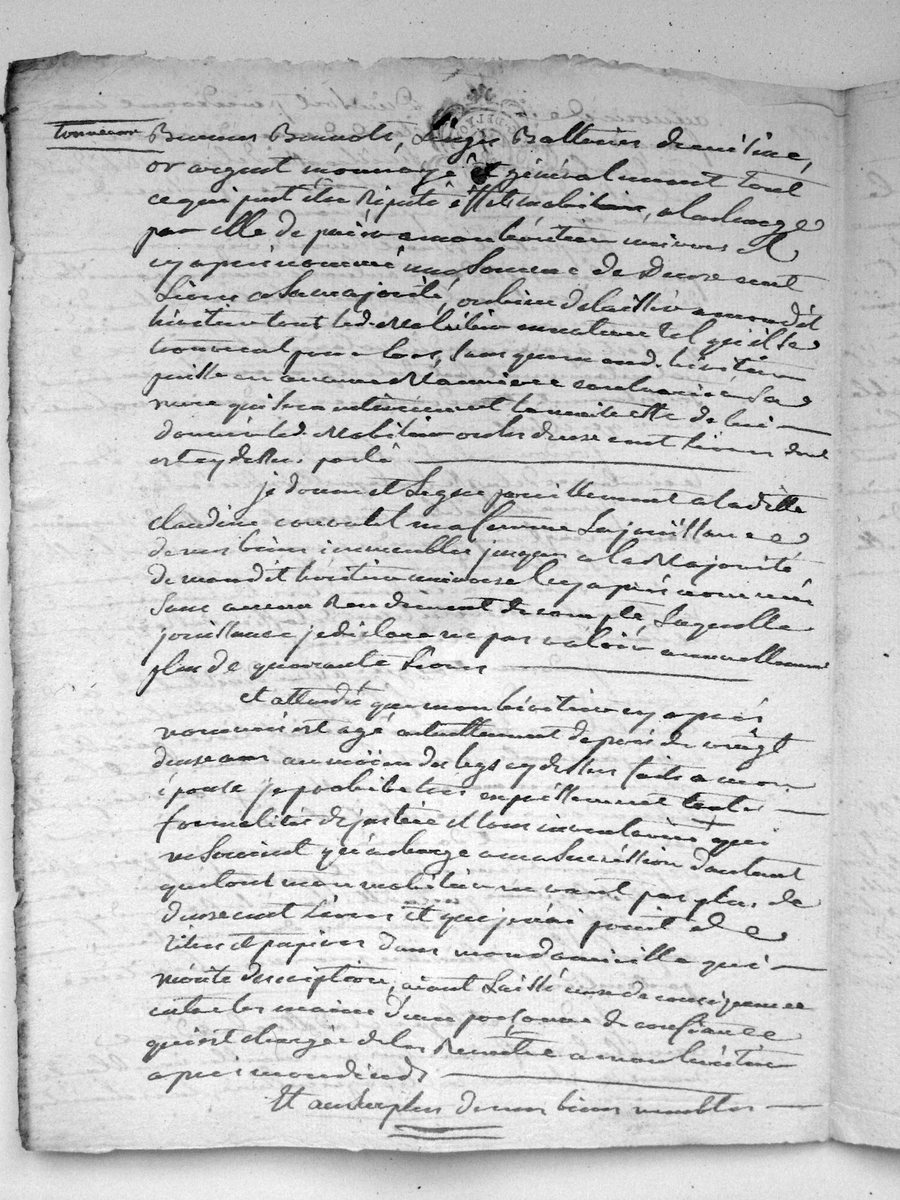 Buessars Linges Batteries de cuisine,
or argent monnoyé et généralement tout
ce qui peut être Réputé effet mobiliaire, a la charge
par elle de païer a mon héritier universel
cy après nommé une Somme de Deux cent
Livres a Sa majorité, ou bien delaisser a mondit
héritier tout led. Mobilier en nature tel qu'il se
trouvera pour lors, Sans que mond. héritier
puisse en aucune Maniere contrarier Sa
mere qui sera entierement la maitresse de lui
donner led. Mobilier ou les deux cent Livres dont
est cy dessus parlé
je donne et Legue pareillement a ladite
claudine ma femme La jouissance
de mes biens immeubles jusques a la Majorité
de mondit héritier universel cy après nommé
Sans aucun Rendement de compte, Laquelle
jouissance je déclare ne pas valoir annuellement
plus de quarante Livres
et attendu que mon héritier cy après
nommé est agé actuellement de près de vingt
deux ans au moïen des legs cy dessus faits a mon
épouse je prohibe très expressement toutes
formalités de justice et tous inventaires qui
ne Seroient qu'a charge a ma Succession d'autant
que tout mon mobilier ne vaut pas plus de
deux cent Livres et que je n'ai point de
titres et papiers dans mon domicille qui
mérite description, aiant Laissé ceux de conséquence
entre les mains d'une personne de confiance
qui est chargée de les Remettre a mon héritier
après mon décès
Et au surplus de mes biens meubles